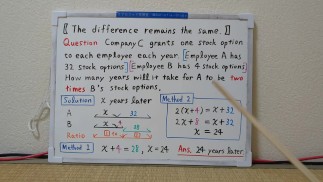 〚 The difference remains the same. 〛
Question Company C grants one stock option
to each employee each year. [Employee A has
32 stock options] [Employee B has 4 stock options.]
How many years will it take for A to be two
times B's stock options.
Solution x years later
A x 32
B x 4 28
Ratio
Method 1 x+4=28, x=24
Method 2
2(x+4) = x+32
2x+8 = x+32
x = 24
Ans. 24 years later